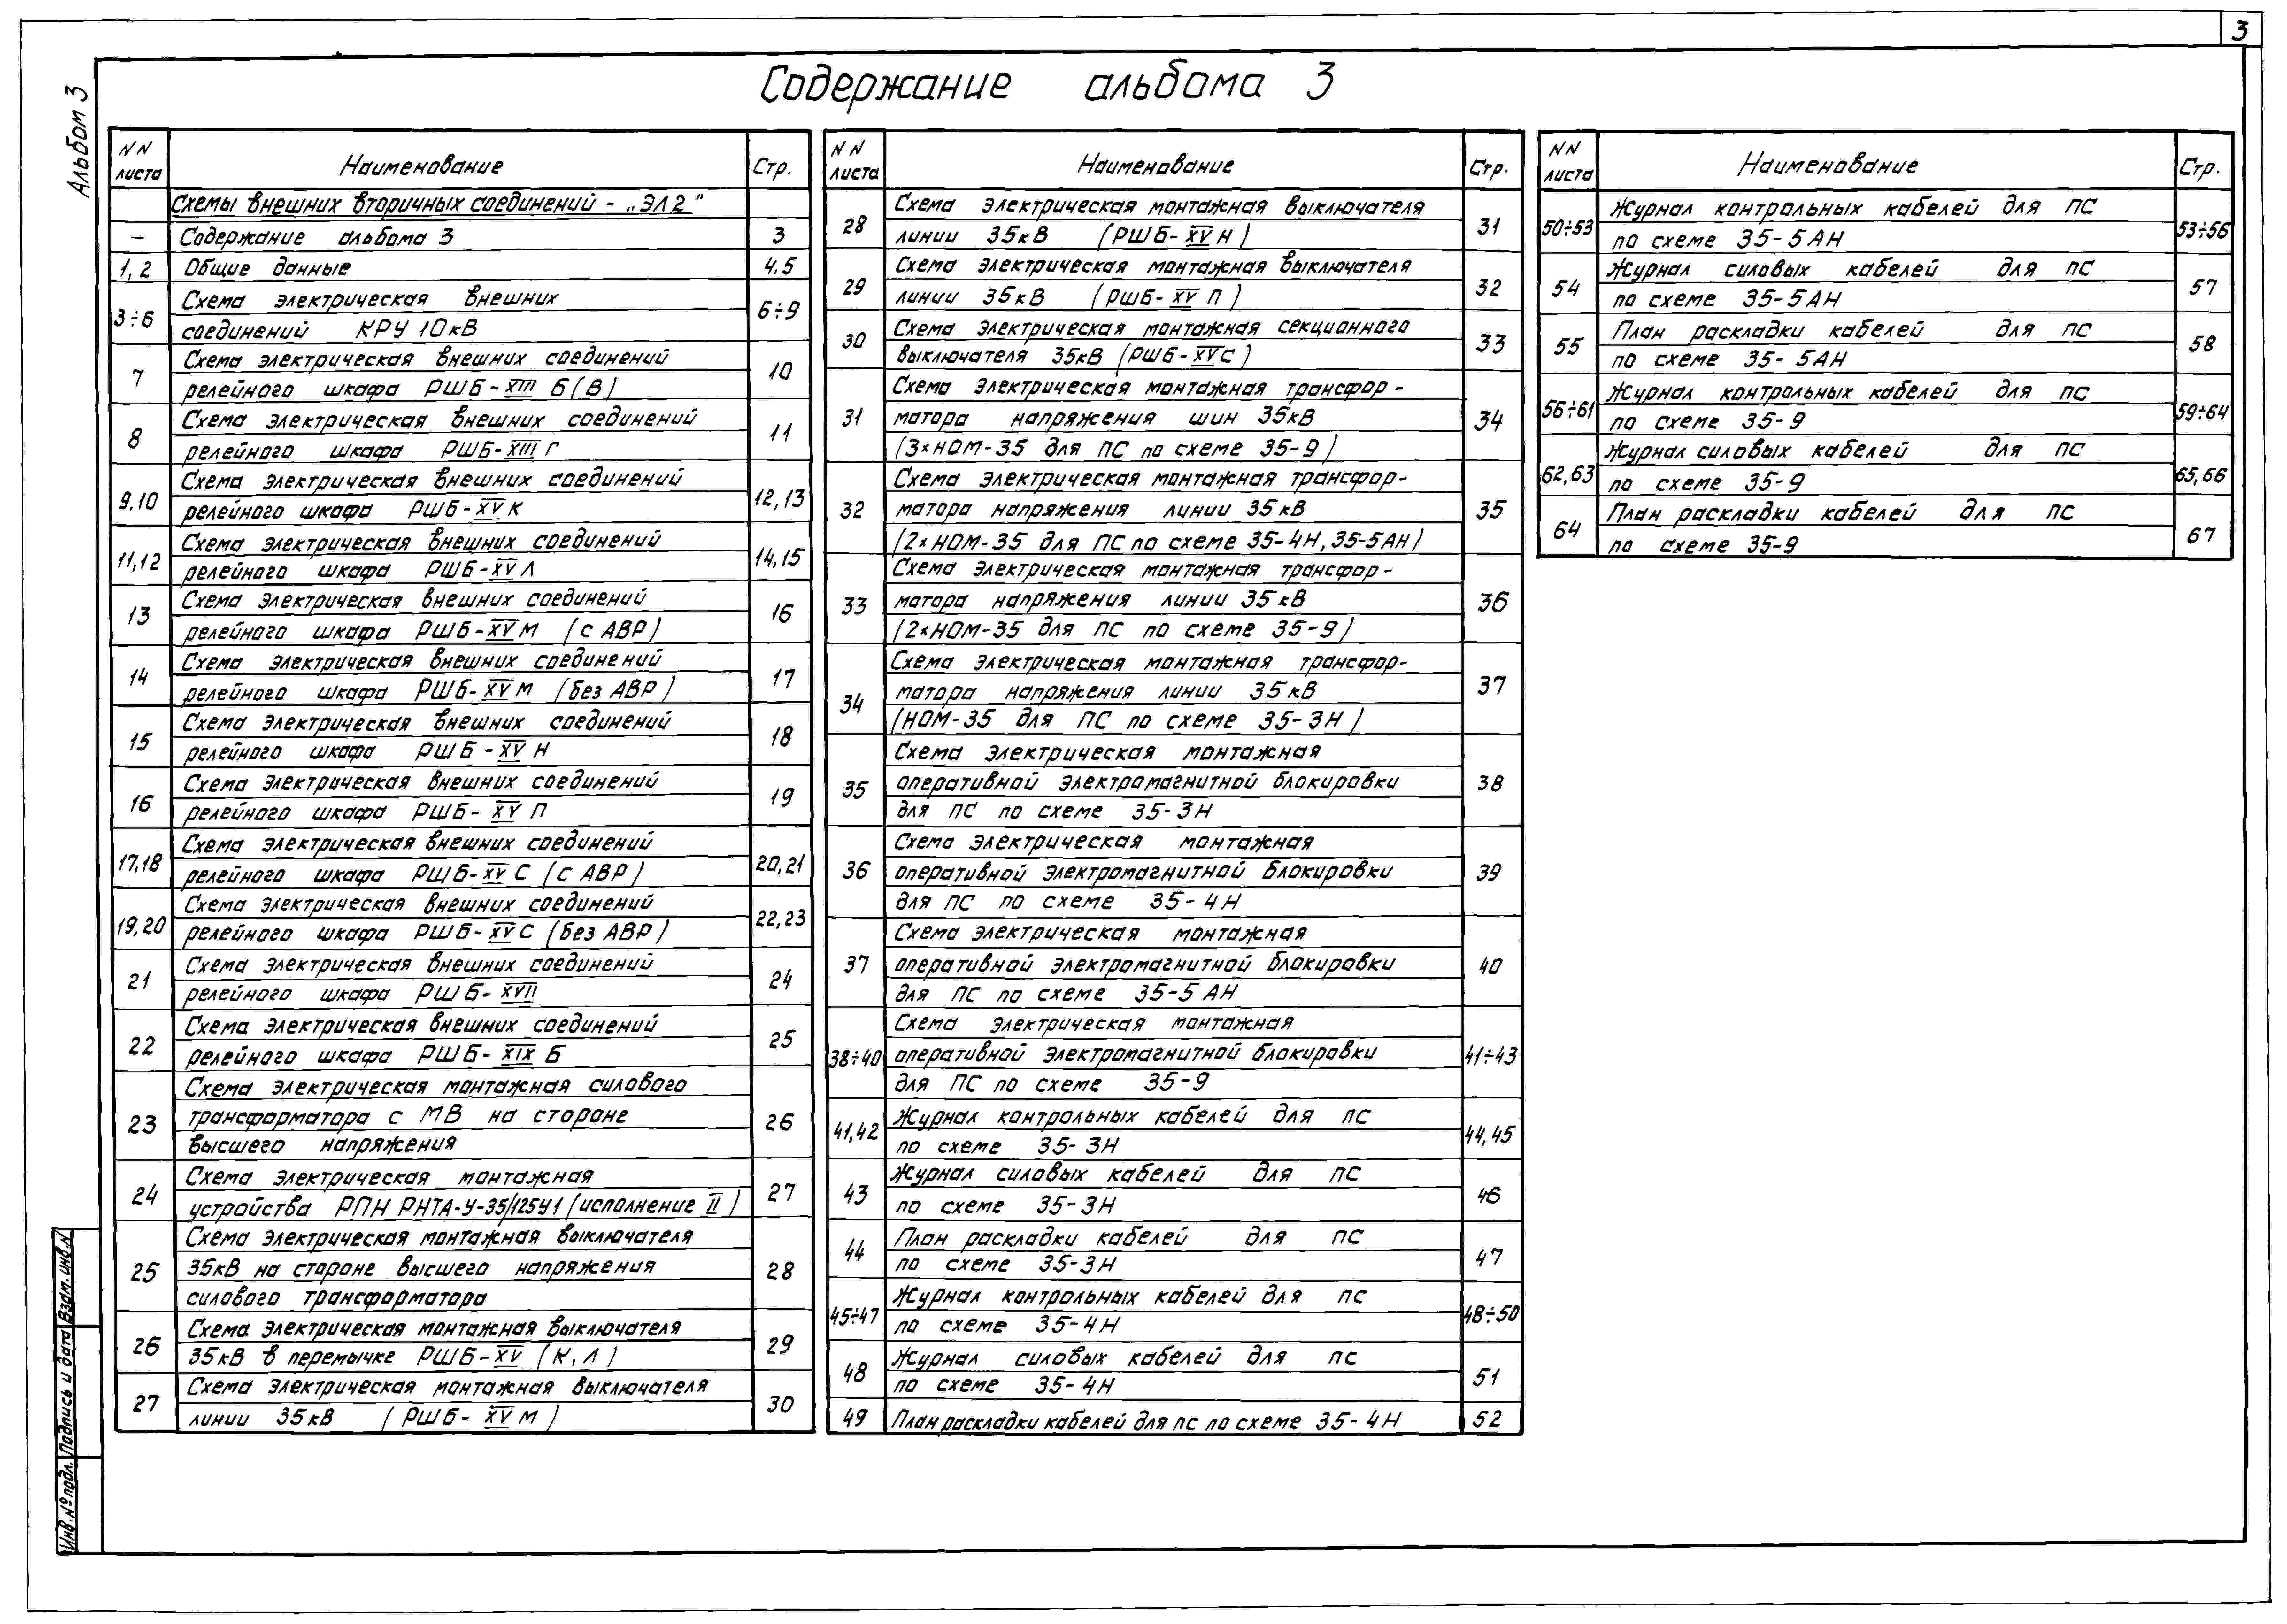 3
Альбом 3
Содержание альбома 3
NN листа Наименование Стр.
Схемы внешних вторичных соединений - „ЭЛ2"
— Содержание альбома 3 3
1, 2 Общие данные 4.5
3÷6 Схема электрическая внешних 6÷9
соединений КРУ 10кВ
7 Схема электрическая внешних соединений 10
релейного шкафа РШБ-XIII Б(В)
8 Схема электрическая внешних соединений 11
релейного шкафа РШБ-XIII Г
9,10 Схема электрическая внешних соединений 12,13
релейного шкафа РШБ-XV К
11,12 Схема электрическая внешних соединений 14,15
релейного шкафа РШБ-XV Л
13 Схема электрическая внешних соединений 16
релейного шкафа РШБ-XV М (с АВР)
14 Схема электрическая внешних соединений 17
релейного шкафа РШБ-XV М (без АВР)
15 Схема электрическая внешних соединений 18
релейного шкафа РШБ-XV Н
16 Схема электрическая внешних соединений 19
релейного шкафа РШБ-XV П
17,18 Схема электрическая внешних соединений 20,21
релейного шкафа РШБ-XV С (с АВР)
19,20 Схема электрическая внешних соединений 22,23
релейного шкафа РШБ-XV С (без АВР)
21 Схема электрическая внешних соединений 24
релейного шкафа РШБ-XVII
22 Схема электрическая внешних соединений 25
релейного шкафа РШБ-XIX Б
23 Схема электрическая монтажная силового 26
трансформатора с МВ на стороне
высшего напряжения
24 Схема электрическая монтажная 27
устройства РПН РНТА-У-35/125У1 (исполнение II)
25 Схема электрическая монтажная выключателя 28
35кВ на стороне высшего напряжения
силового трансформатора
26 Схема электрическая монтажная выключателя 29
35кВ в перемычке РШБ-XV (К, Л)
27 Схема электрическая монтажная выключателя 30
линии 35кВ (РШБ-XV М)
NN листа Наименование Стр.
28 Схема электрическая монтажная выключателя 31
линии 35кВ (РШБ-XV Н)
29 Схема электрическая монтажная выключателя 32
линии 35кВ (РШБ-XV П)
30 Схема электрическая монтажная секционного 33
выключателя 35кВ (РШБ-XV С)
31 Схема электрическая монтажная трансфор- 34
матора напряжения шин 35кВ
(3×НОМ-35 для ПС по схеме 35-9)
32 Схема электрическая монтажная трансфор- 35
матора напряжения линии 35кВ
(2×НОМ-35 для ПС по схеме 35-4Н, 35-5АН)
33 Схема электрическая монтажная трансфор- 36
матора напряжения линии 35кВ
(2×НОМ-35 для ПС по схеме 35-9)
34 Схема электрическая монтажная трансфор- 37
матора напряжения линии 35кВ
(НОМ-35 для ПС по схеме 35-3Н)
35 Схема электрическая монтажная 38
оперативной электромагнитной блокировки
для ПС по схеме 35-3Н
36 Схема электрическая монтажная 39
оперативной электромагнитной блокировки
для ПС по схеме 35-4Н
37 Схема электрическая монтажная 40
оперативной электромагнитной блокировки
для ПС по схеме 35-5АН
38÷40 Схема электрическая монтажная 41÷43
оперативной электромагнитной блокировки
для ПС по схеме 35-9
41,42 Журнал контрольных кабелей для ПС 44,45
по схеме 35-3Н
43 Журнал силовых кабелей для ПС 46
по схеме 35-3Н
44 План раскладки кабелей для ПС 47
по схеме 35-3Н
45÷47 Журнал контрольных кабелей для ПС 48÷50
по схеме 35-4Н
48 Журнал силовых кабелей для ПС 51
по схеме 35-4Н
49 План раскладки кабелей для ПС по схеме 35-4Н 52
NN листа Наименование Стр.
50÷53 Журнал контрольных кабелей для ПС 53÷56
по схеме 35-5АН
54 Журнал силовых кабелей для ПС 57
по схеме 35-5АН
55 План раскладки кабелей для ПС 58
по схеме 35-5АН
56÷61 Журнал контрольных кабелей для ПС 59÷64
по схеме 35-9
62,63 Журнал силовых кабелей для ПС 65,66
по схеме 35-9
64 План раскладки кабелей для ПС 67
по схеме 35-9
Взам. инв. N
Подпись и дата
Инв. № подл.